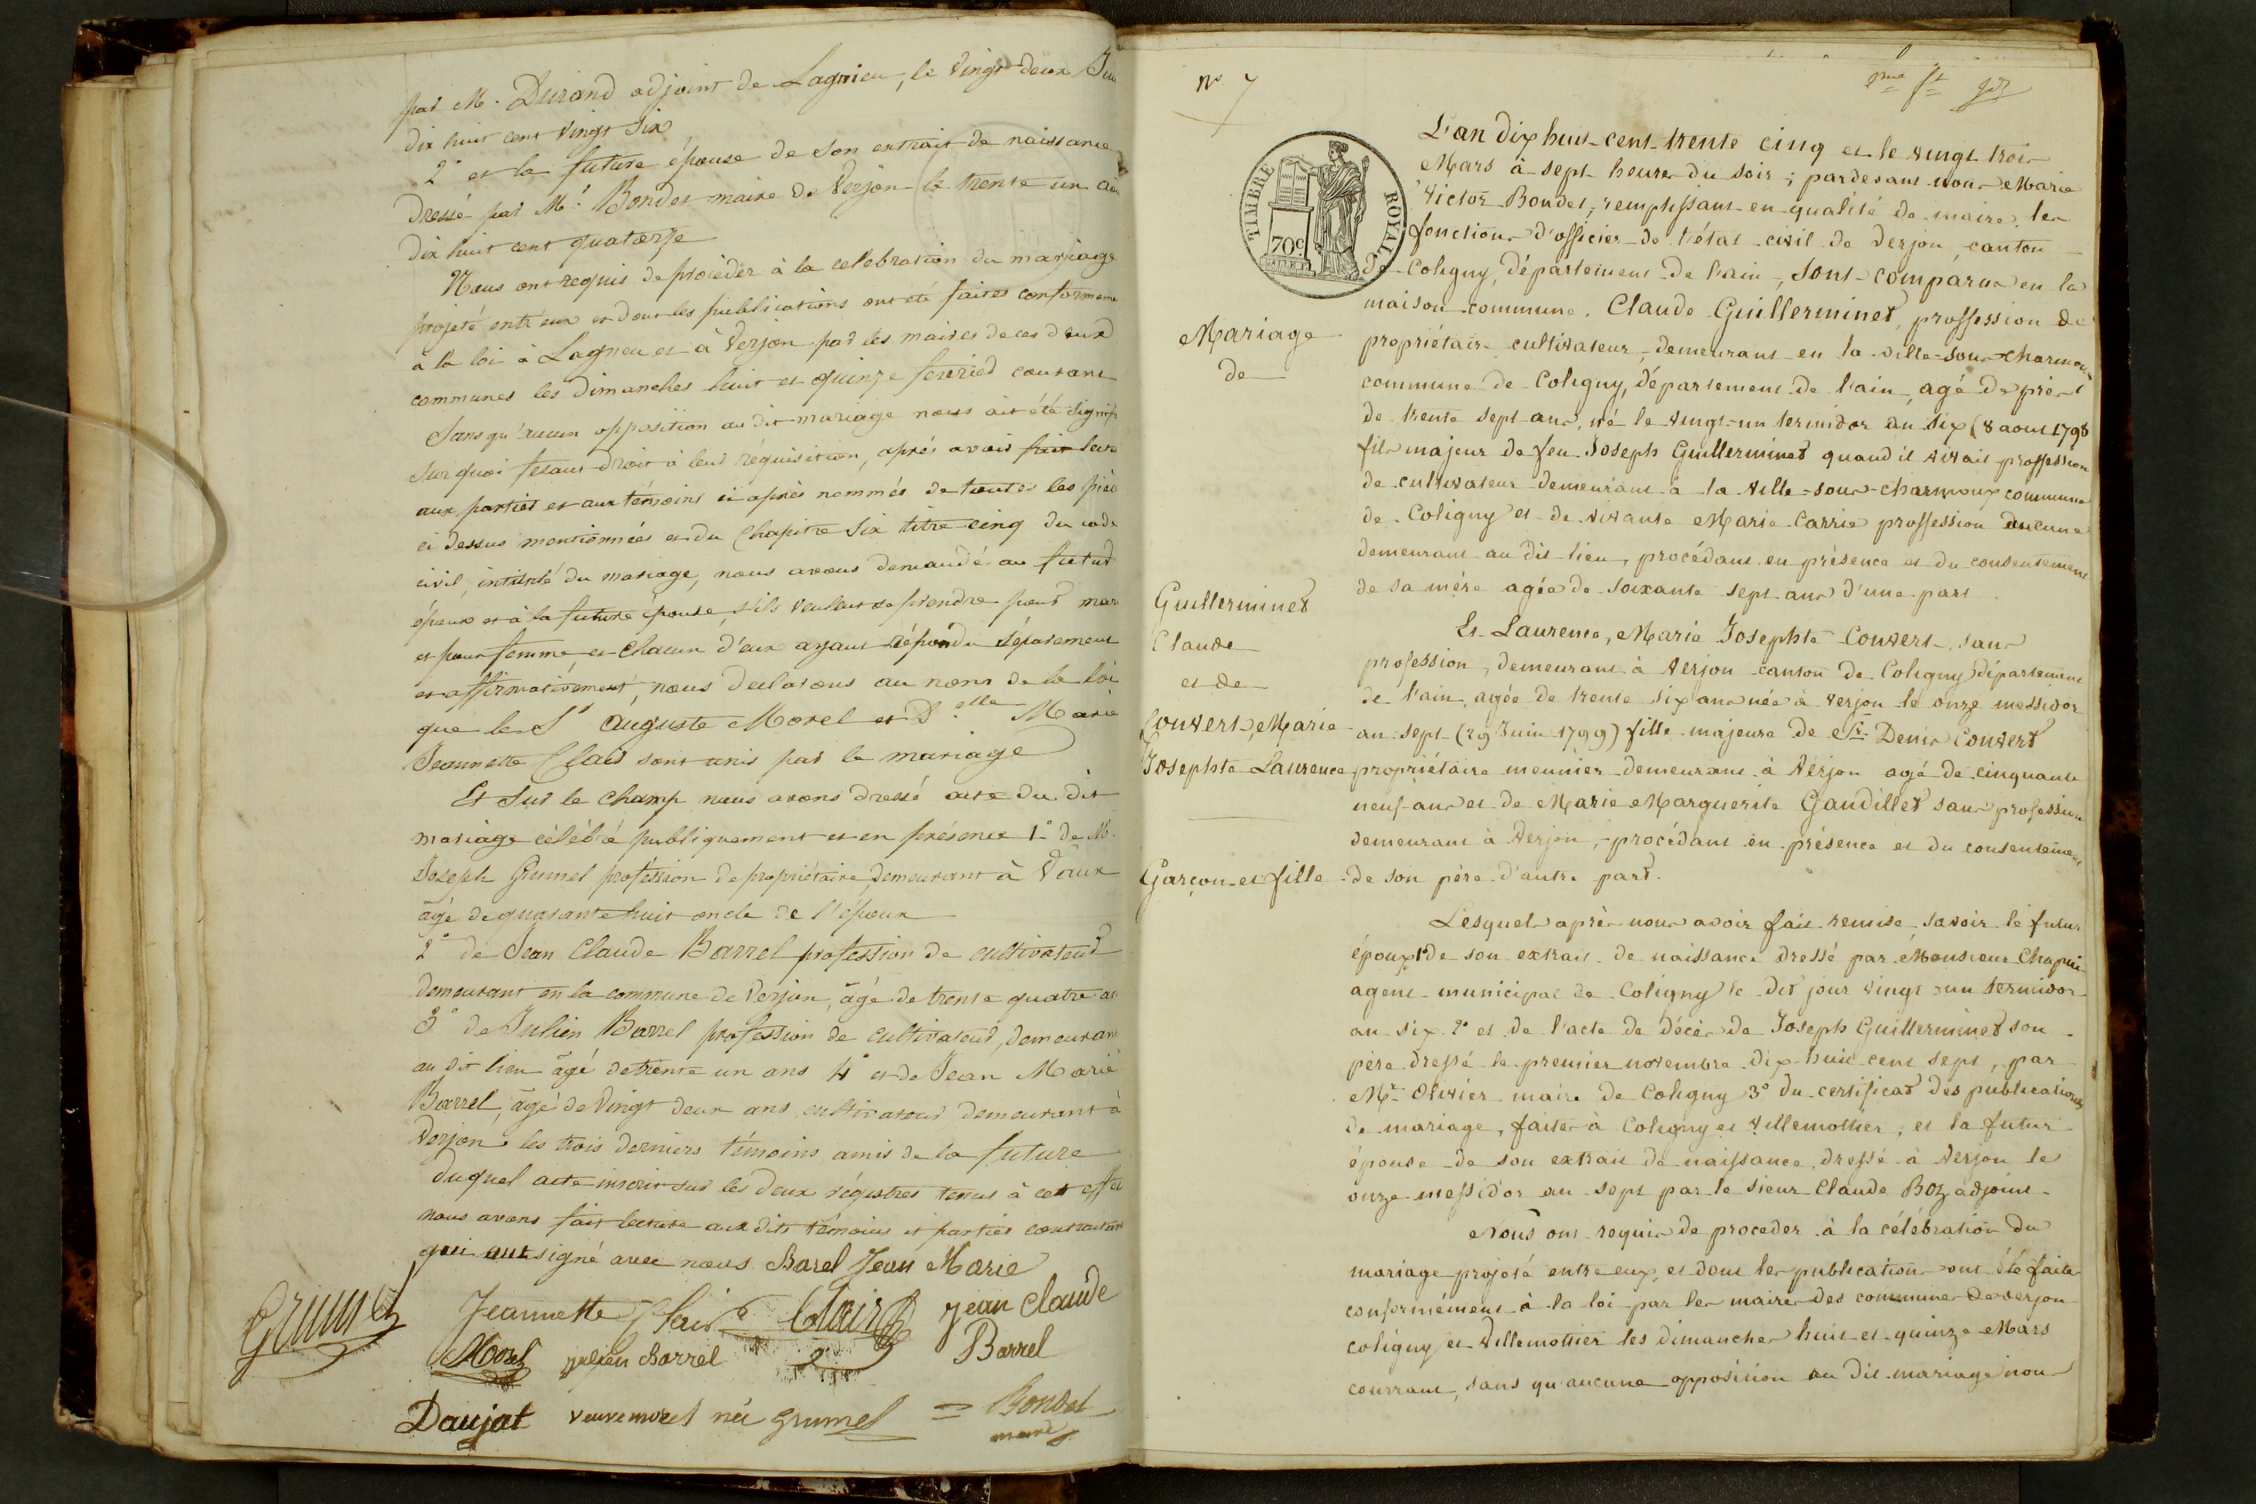 par M. Durand adjoint de Lagnieu, le vingt deux
dix huit cent vingt six
2° et la future épouse de son extrait de naissance
dressé par Mr. Bondet maire de Verjon le trente un
dix huit cent quatorze
Nous ont requis de procéder à la celebration du mariage
projeté entr'eux et dont les publications ont été faites conformeme
à la loi à Lagneu et à Verjon par les maires de ces deux
communes les dimanches huit et quinze fevrier courant
Sans qu'aucun opposition au dit mariage nous ait été signif
Sur quoi fesant droit à leur réquisition, après avoir fait lect
aux parties et aux témoins ci après nommés de toutes les pièc
ci dessus mentionnées et du Chapitre Six titre cinq du code
civil, intitulé du mariage, nous avons demandé au futur
époux et à la future épouse, s'ils veulent se prendre pour mar
et pour femme, et chacun d'eux ayant répondu séparement
et affirmativement, nous declarons au nom de la loi
que le Sr Auguste Morel et Delle Marie
Jeannette Clair sont unis par le mariage
Et Sur le champ nous avons dressé acte du dit
mariage célébré publiquement et en présence 1° de M.
Joseph Grumel profession de propriétaire, demeurant à Vaux
âgé de quarante huit oncle de l'époux
2° de Jean Claude Barrel profession de cultivateur
demeurant en la commune de Verjon, âgé de trente quatre an
3° de Julien Barrel profession de cultivateur, demeurant
au dit lieu âgé de trente un ans 4° et de Jean Marie
Barrel, âgé de vingt deux ans cultivateur demeurant à
Verjon, les trois derniers témoins amis de la future
duquel acte inscrit sur les deux régistres tenus à cet effet
nous avons fait lecture aux dits témoins et parties contractant
qui ont signé avec nous Barel Jean Marie
Grumel Jeannette Clair Clair Jean Claude
Morel julien Barrel Barrel
Daujat veuve morel née grumel = Bondet
maire
N° 7
TIMBRE ROYAL
70c
L'an dix huit cent trente cinq et le vingt trois
Mars à sept heures du soir ; pardevant nous Marie
Victor Bondet, remplissant en qualité de maire les
fonctions d'officier de l'état civil de Verjon, canton
de Coligny, département de l'ain, Sont comparus en la
maison commune. Claude Guillerminet, proffession de
propriétaire cultivateur, demeurant en la ville-sous-charmoux
commune de Coligny, département de l'ain, agé de près
de trente sept ans, né le vingt-un termidor an six (8 aout 1798
fils majeur de feu Joseph Guillerminet quand il vivait proffession
de cultivateur demeurant à la ville-sous-charmoux commune
de Coligny et de vivante Marie Carrie proffession aucune
demeurant au dit lieu, procédant en présence et du consentement
de sa mère agée de soixante sept ans d'une part.
Mariage
de
Guillerminet
Claude
et de
Convert, Marie
Josephte Laurence
Garçon et fille
Et Laurence, Marie Josephte Convert, sans
profession, demeurant à Verjon canton de Coligny département
de l'ain, agée de trente six ans née à verjon le onze messidor
an sept (29 Juin 1799) fille majeure de Sr. Denis Convert
propriétaire meunier demeurant à Verjon agé de cinquante
neuf ans et de Marie Marguerite Gaudillet sans profession
demeurant à Verjon, procédant en présence et du consentement
de son père d'autre part.
Lesquels après nous avoir fait remise, savoir le futur
époux 1° de son extrait de naissance dressé par Monsieur Chapuis
agent municipal de Coligny le dit jour vingt un termidor
an six. 2° et de l'acte de décès de Joseph Guillerminet son
père dressé le premier novembre dix huit cent sept, par
Mr Olivier maire de Coligny 3° du certificat des publications
de mariage, faites à Coligny et villemotier, et la futur
épouse de son extrait de naissance dressé à Verjon le
onze messidor an sept par le sieur Claude Boz adjoint.
Nous ont requis de proceder à la célébration du
mariage projeté entre eux, et dont les publications ont été faites
conformément à la loi par les maires des communes de verjon
coligny et Villemotier les dimanches huit et quinze Mars
courrant, sans qu'aucune opposition au dit mariage nous